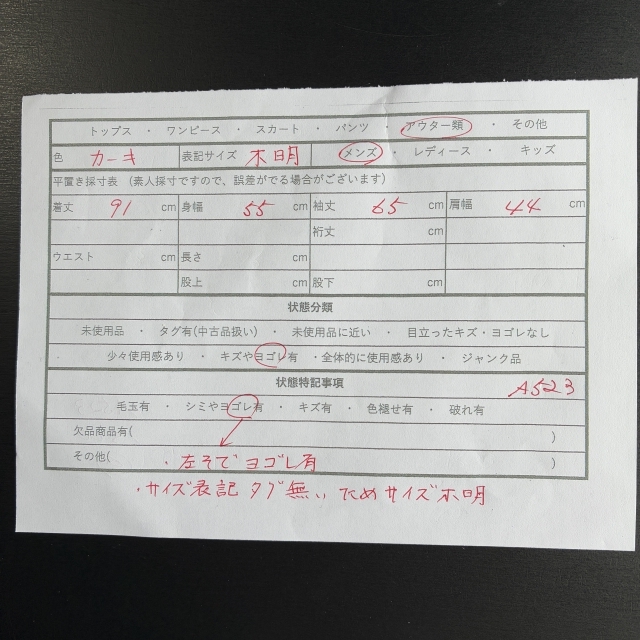 トップス ・ ワンピース ・ スカート ・ パンツ ・ アウター類 ・ その他
色 カーキ 表記サイズ 不明 メンズ ・ レディース ・ キッズ
平置き採寸表 (素人採寸ですので、誤差がでる場合がございます)
着丈 91 cm 身幅 55 cm 袖丈 65 cm 肩幅 44 cm
裄丈 cm
ウエスト cm 長さ cm
股上 cm 股下 cm
状態分類
未使用品 ・ タグ有(中古品扱い) ・ 未使用品に近い ・ 目立ったキズ・ヨゴレなし
少々使用感あり ・ キズやヨゴレ有 ・全体的に使用感あり ・ ジャンク品
状態特記事項 A523
毛玉有 ・ シミやヨゴレ有 ・ キズ有 ・ 色褪せ有 ・ 破れ有
欠品商品有( )
その他( ・左そでヨゴレ有 )
・サイズ表記タグ無いためサイズ不明